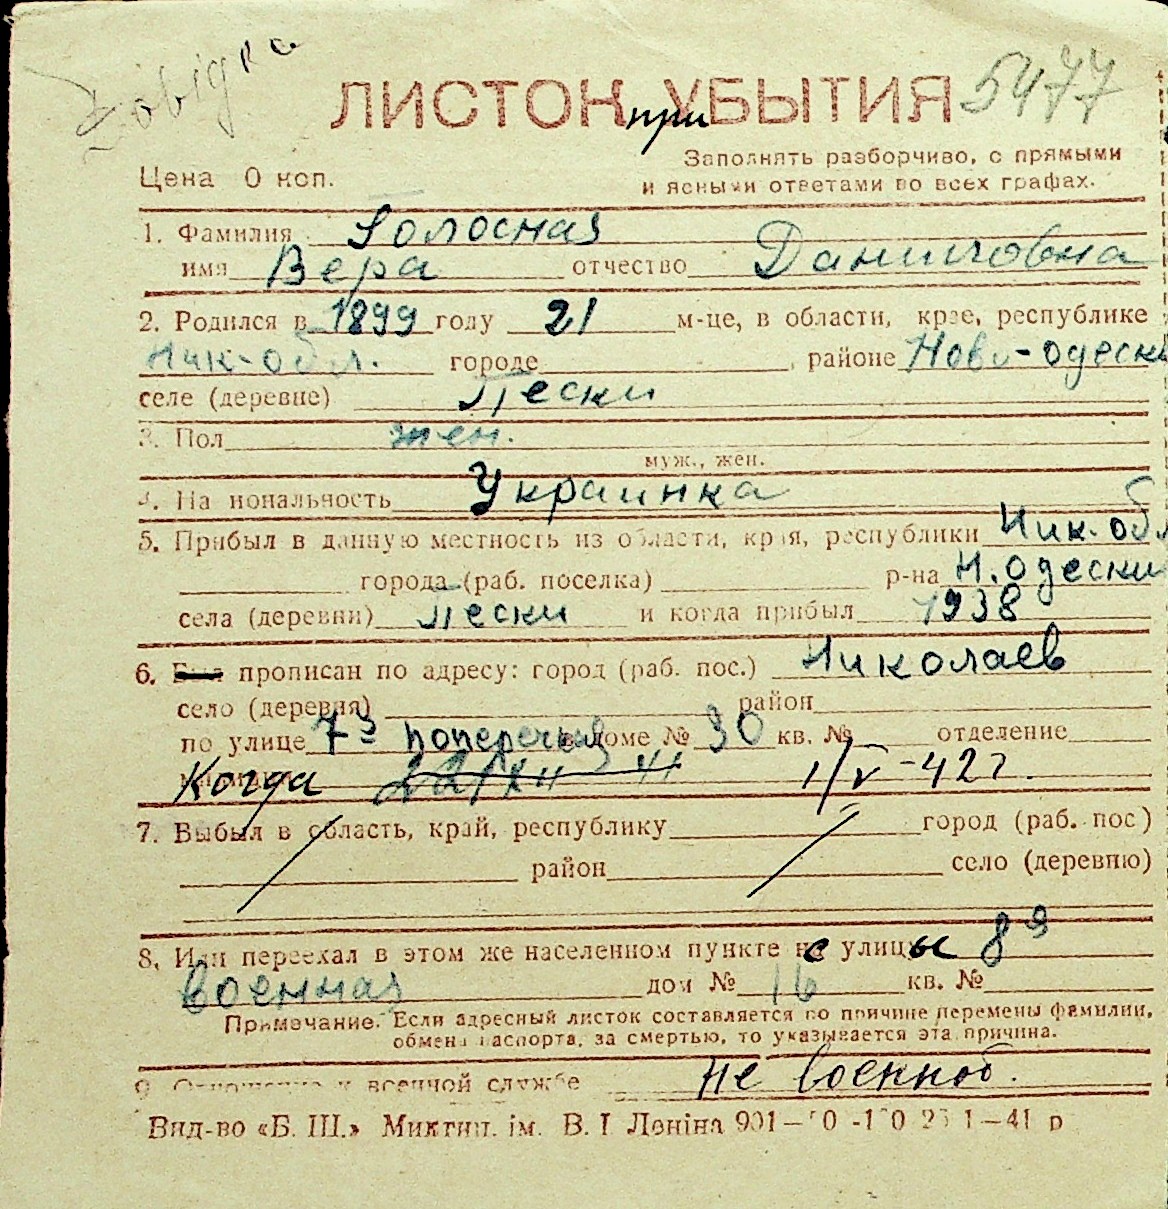 Довідка
ЛИСТОК при УБЫТИЯ 5477
Заполнять разборчиво, с прямыми
Цена 0 коп. и ясными ответами во всех графах.
1. Фамилия Голосная
имя Вера отчество Даниловна
2. Родился в 1899 году 21 м-це, в области, крае, республике
Ник-обл. городе районе Ново-одесск
селе (деревне) Пески
3. Пол жен.
муж., жен.
4. На иональность Украинка
5. Прибыл в данную местность из области, края, республики Ник. обл
города (раб. поселка) р-на Н. Одески
села (деревни) Пески и когда прибыл 1938
6. Был прописан по адресу: город (раб. пос.) Николаев
село (деревня) район
по улице 7я поперечная в доме № 30 кв. № отделение
Когда 1/V-42г.
7. Выбыл в область, край, республику город (раб. пос)
район село (деревню)
8. Или переехал в этом же населенном пункте с улицы 8я
военная дом № 16 кв. №
Примечание. Если адресный листок составляется по причине перемены фамилии,
обмена паспорта, за смертью, то указывается эта причина.
9 Отношение к военной службе не военноб.
Вид-во «Б. Ш.» Миктип. ім. В. І Леніна